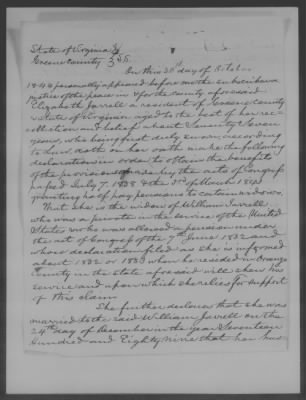 State of Virginia
Greene County } S.S.
On this 20th day of October
1843 personally appeared before me the subscriber a
Justice of the peace in & for the county aforesaid
Elizabeth Jarrell a resident of Greene County
& State of Virginia aged to the best of her rec-
ollection and belief about Seventy Seven
years, who being first duly sworn according
to law, doth on her oath make the following
declaration in order to obtain the benefits
of the provision made by the acts of Congress
passed July 7. 1838 & the 3rd of March 1843
granting half pay pensions to certain widows.
That she is the widow of William Jarrell
who was a private in the service of the United
States & who was allowed a pension under
the act of Congress of the 7th June 1832 and
whose declaration filed as she is informed
about 1832 or 1833 when he resided in Orange
County in the State aforesaid will shew his
service and upon which she relies for support
of this claim
She further declares that she was
married to the said William Jarrell on the
24th day of December in the year Seventeen
Hundred and Eighty nine that her hus-